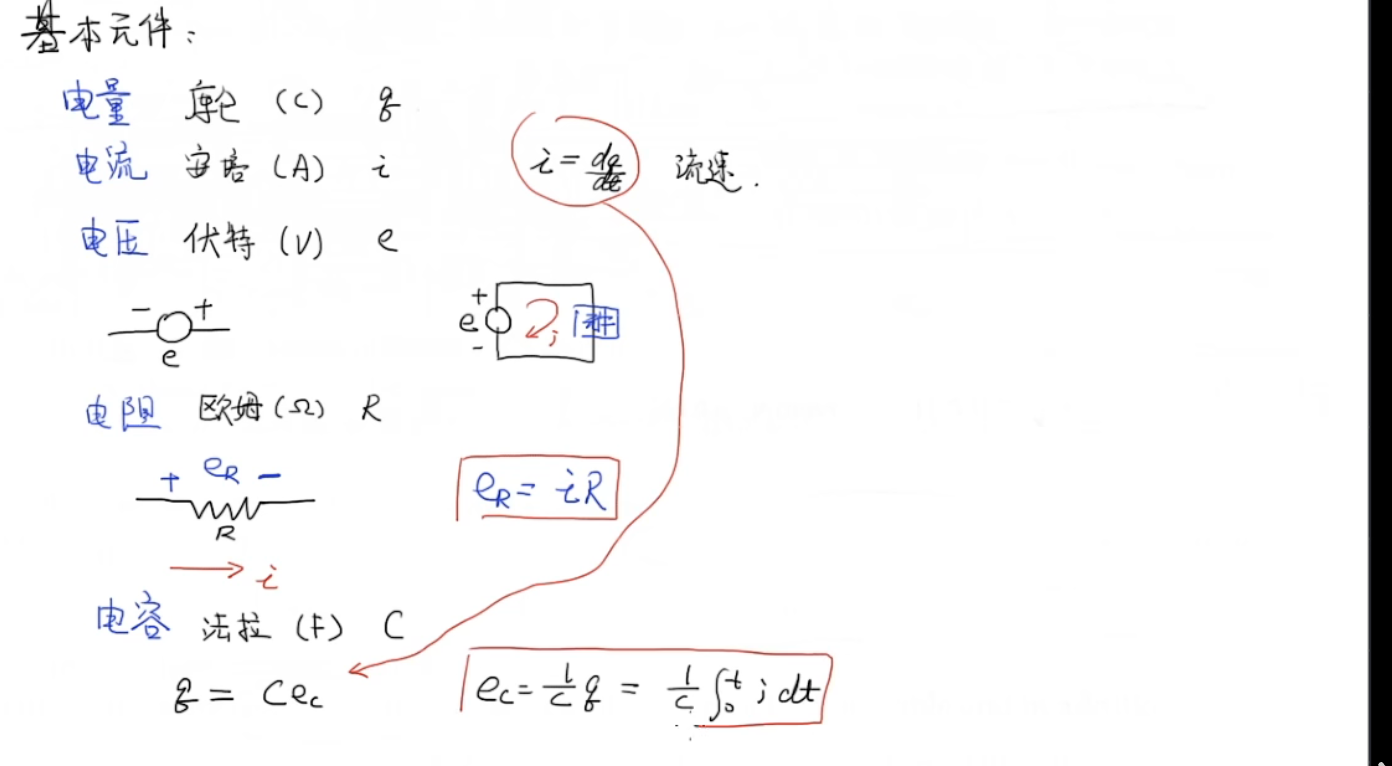 基本元件：
电量 库仑 (C) q
电流 安培 (A) i i = dq/dt 流速.
电压 伏特 (V) e
- + e
+ e - i 元件
电阻 欧姆 (Ω) R
+ eR - R
eR = iR
i
电容 法拉 (F) C
q = CeC
eC = 1/C q = 1/C ∫₀ᵗ i dt